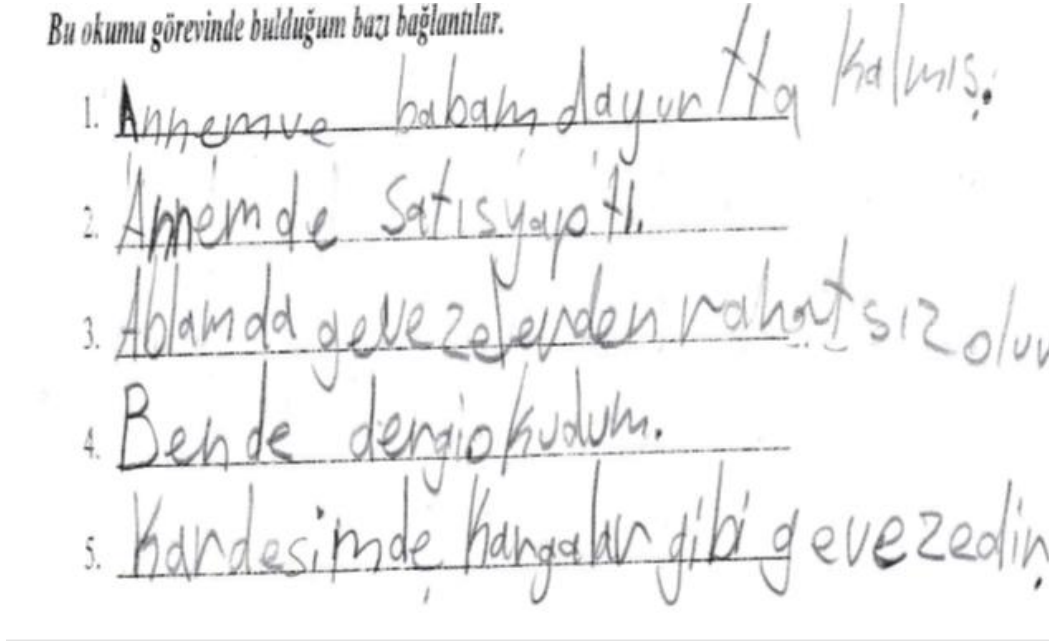 Bu okuma görevinde bulduğum bazı bağlantılar.
1. Annemve babamdayurtta kalmış.
2. Annemde satısyaptı.
3. Ablamda gevezelerden rahatsız olur
4. Bende dergiokudum.
5. Kardesimde kargalar gibi gevezedir.